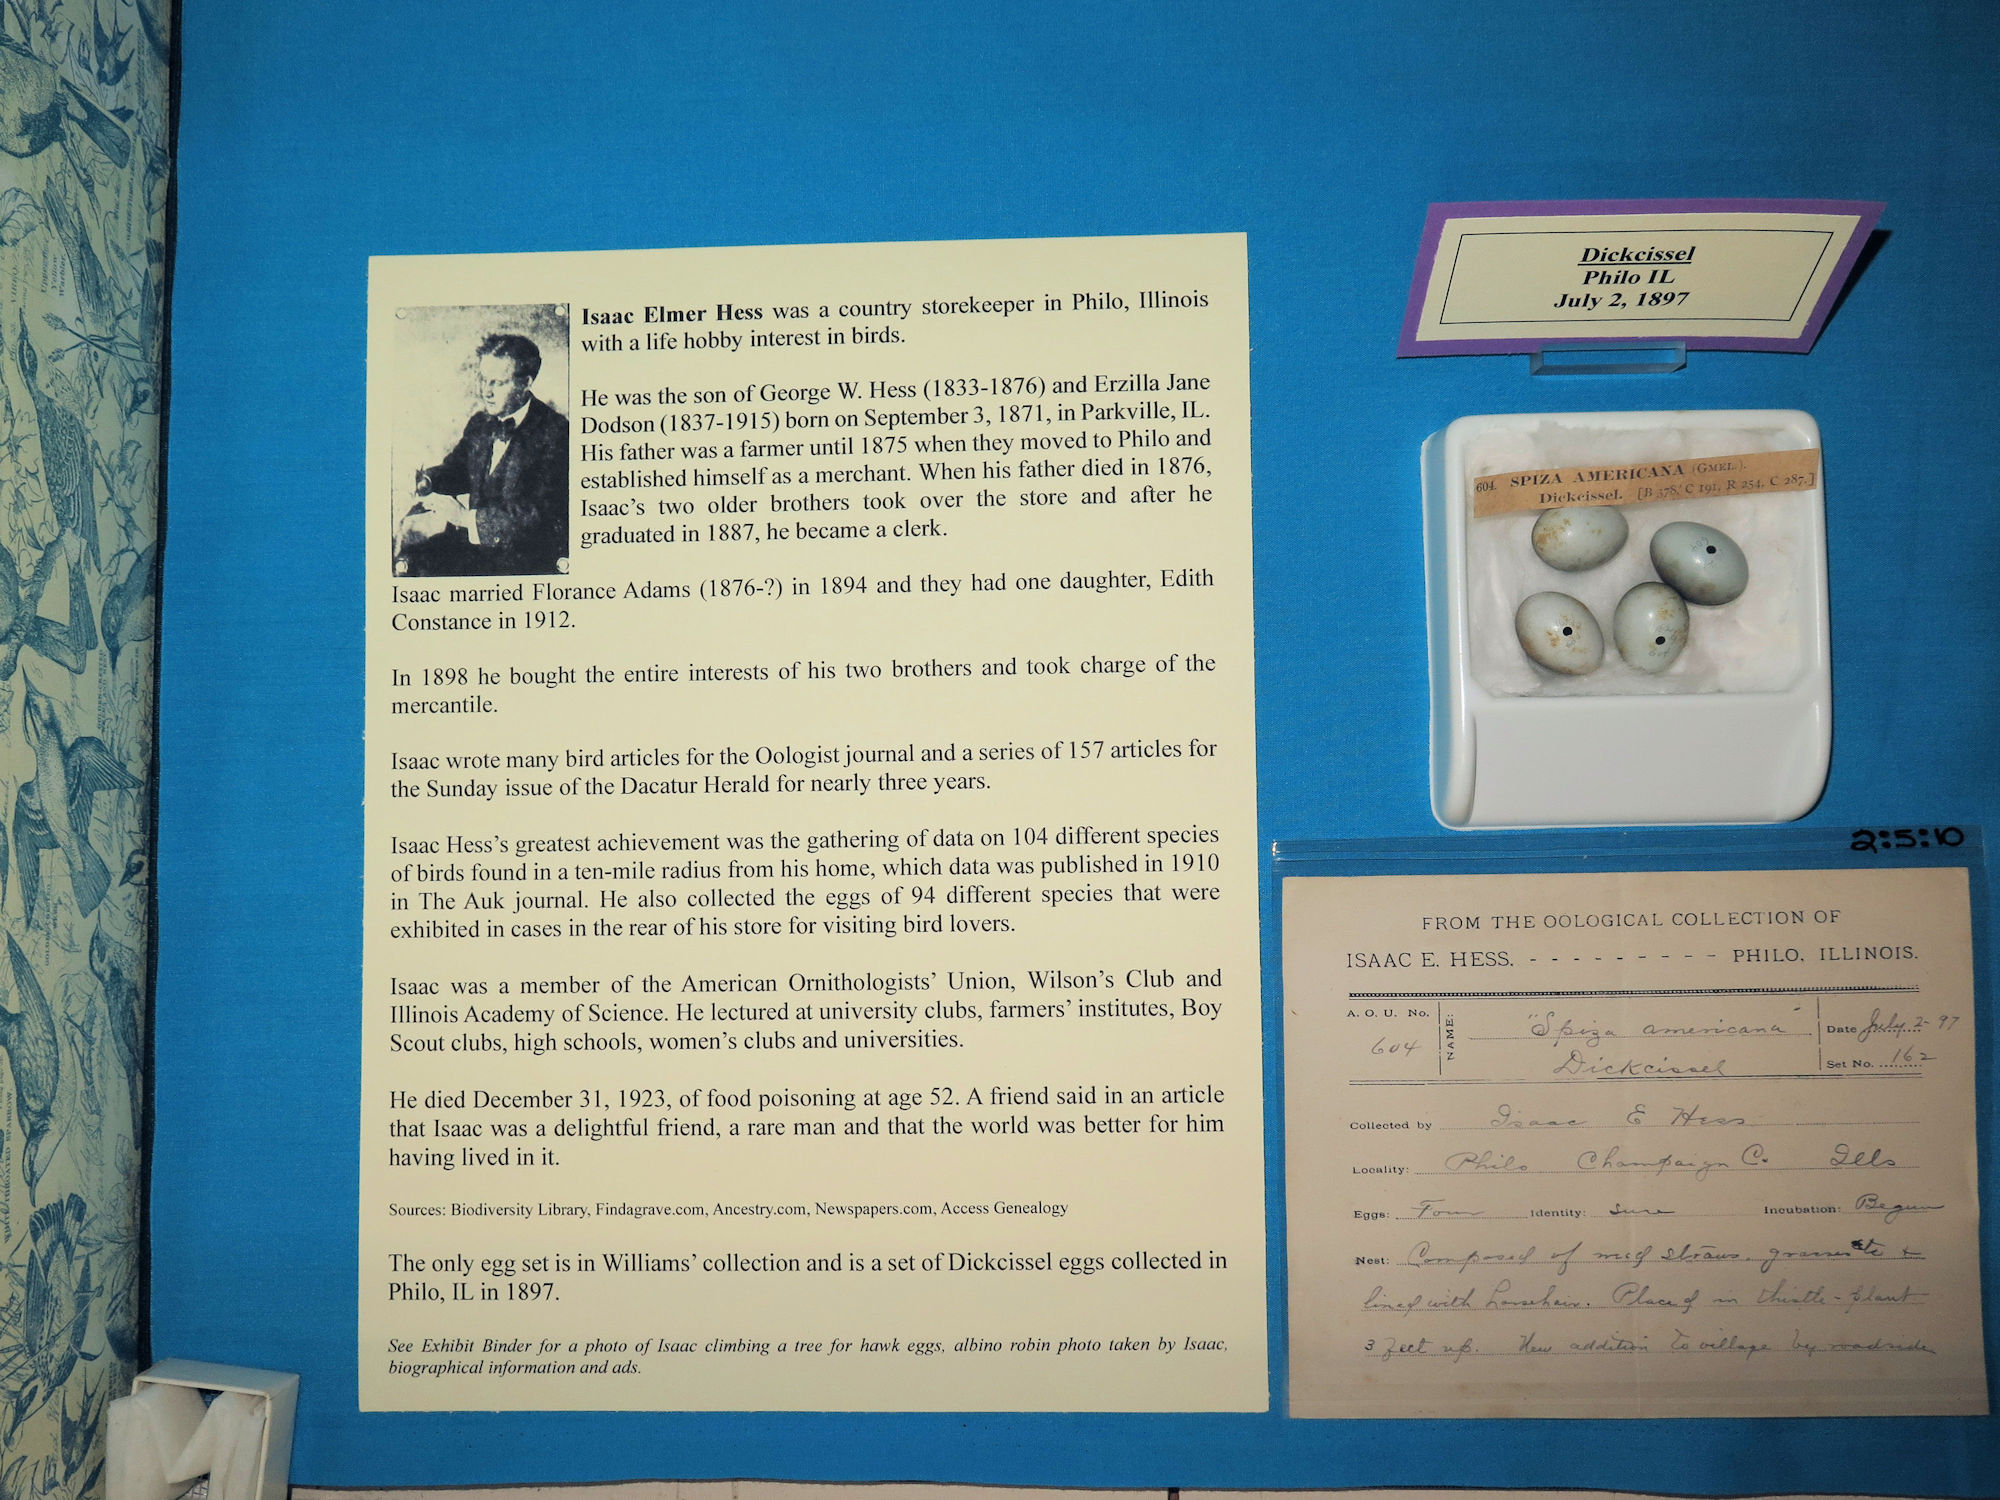 Isaac Elmer Hess was a country storekeeper in Philo, Illinois
with a life hobby interest in birds.
He was the son of George W. Hess (1833-1876) and Erzilla Jane
Dodson (1837-1915) born on September 3, 1871, in Parkville, IL.
His father was a farmer until 1875 when they moved to Philo and
established himself as a merchant. When his father died in 1876,
Isaac's two older brothers took over the store and after he
graduated in 1887, he became a clerk.
Isaac married Florance Adams (1876-?) in 1894 and they had one daughter, Edith
Constance in 1912.
In 1898 he bought the entire interests of his two brothers and took charge of the
mercantile.
Isaac wrote many bird articles for the Oologist journal and a series of 157 articles for
the Sunday issue of the Dacatur Herald for nearly three years.
Isaac Hess's greatest achievement was the gathering of data on 104 different species
of birds found in a ten-mile radius from his home, which data was published in 1910
in The Auk journal. He also collected the eggs of 94 different species that were
exhibited in cases in the rear of his store for visiting bird lovers.
Isaac was a member of the American Ornithologists' Union, Wilson's Club and
Illinois Academy of Science. He lectured at university clubs, farmers' institutes, Boy
Scout clubs, high schools, women's clubs and universities.
He died December 31, 1923, of food poisoning at age 52. A friend said in an article
that Isaac was a delightful friend, a rare man and that the world was better for him
having lived in it.
Sources: Biodiversity Library, Findagrave.com, Ancestry.com, Newspapers.com, Access Genealogy
The only egg set is in Williams' collection and is a set of Dickcissel eggs collected in
Philo, IL in 1897.
See Exhibit Binder for a photo of Isaac climbing a tree for hawk eggs, albino robin photo taken by Isaac,
biographical information and ads.
Dickcissel
Philo IL
July 2, 1897
604. SPIZA AMERICANA (GMEL.).
Dickcissel. [B 378, C 191, R 254, C 287.]
2:5:10
FROM THE OOLOGICAL COLLECTION OF
ISAAC E. HESS. - - - - - - - - - PHILO, ILLINOIS.
A. O. U. No. 604 NAME: "Spiza americana" Date July 2-97
Dickcissel Set No. 162
Collected by Isaac E Hess
Locality: Philo Champaign Co. Ills
Eggs: Four Identity: Sure Incubation: Begun
Nest: Composed of straws, grasses &
lined with horsehair. Placed in thistle-plant
3 feet up. New addition to village by roadside
M